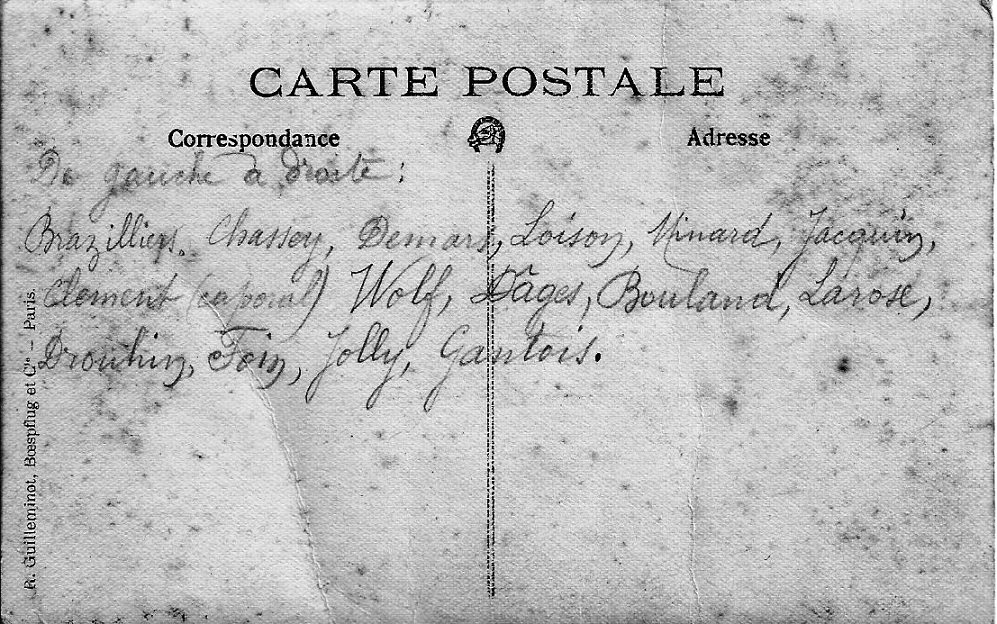 CARTE POSTALE
Correspondance
Adresse
De gauche à droite :
Brazilliers, Chassey, Demars, Loison, Minard, Jacquin,
Clement (caporal) Wolf, Dâges, Bouland, Larose,
Drouhin, Foin, Jolly, Gantois.
R. Guilleminot, Bœspflug et Cie – Paris.